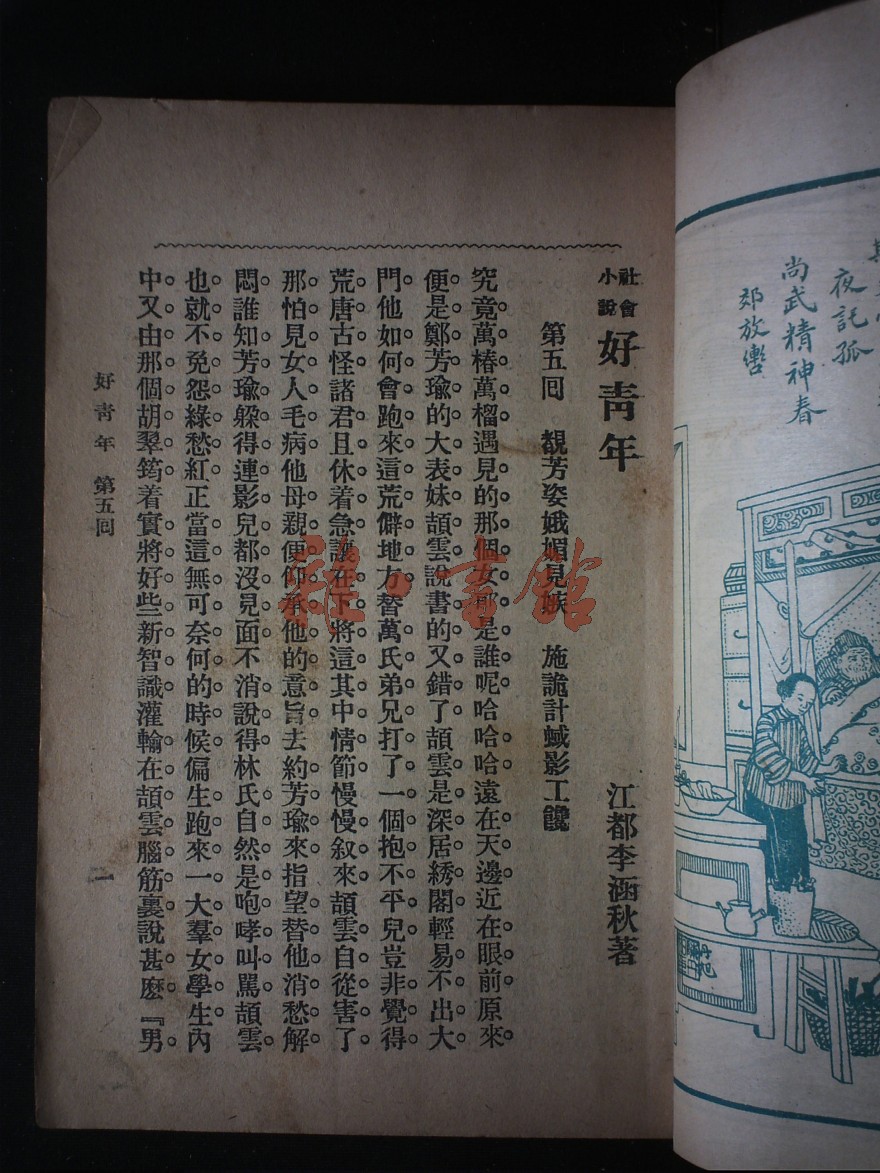 尚武精神春
夜託孤
郊放
社會
小說
好青年
江都李涵秋著
第五回 覩芳姿娥媚見嫉 施詭計蜮影工讒
究竟萬椿萬榴遇見的那個女郎是誰呢哈哈哈遠在天邊近在眼前原來。
便是鄭芳瑜的大表妹頡雲說書的又錯了頡雲是深居綉閣輕易不出大
門他如何會跑來這荒僻地方替萬氏弟兄打了一個抱不平兒豈非覺得
荒唐古怪諸君且休着急讓在下將這其中情節慢慢叙來頡雲自從害了
那怕見女人毛病他母親便仰承他的意旨去約芳瑜來指望替他消愁解
悶誰知芳瑜躱得連影兒都沒見面不消說得林氏自然是咆哮叫罵頡雲
也就不免怨綠愁紅正當這無可奈何的時候偏生跑來一大羣女學生內
中又由那個胡翠筠着實將好些新智識灌輸在頡雲腦筋裏說甚麽『男
好青年 第五回
一
雜·書館